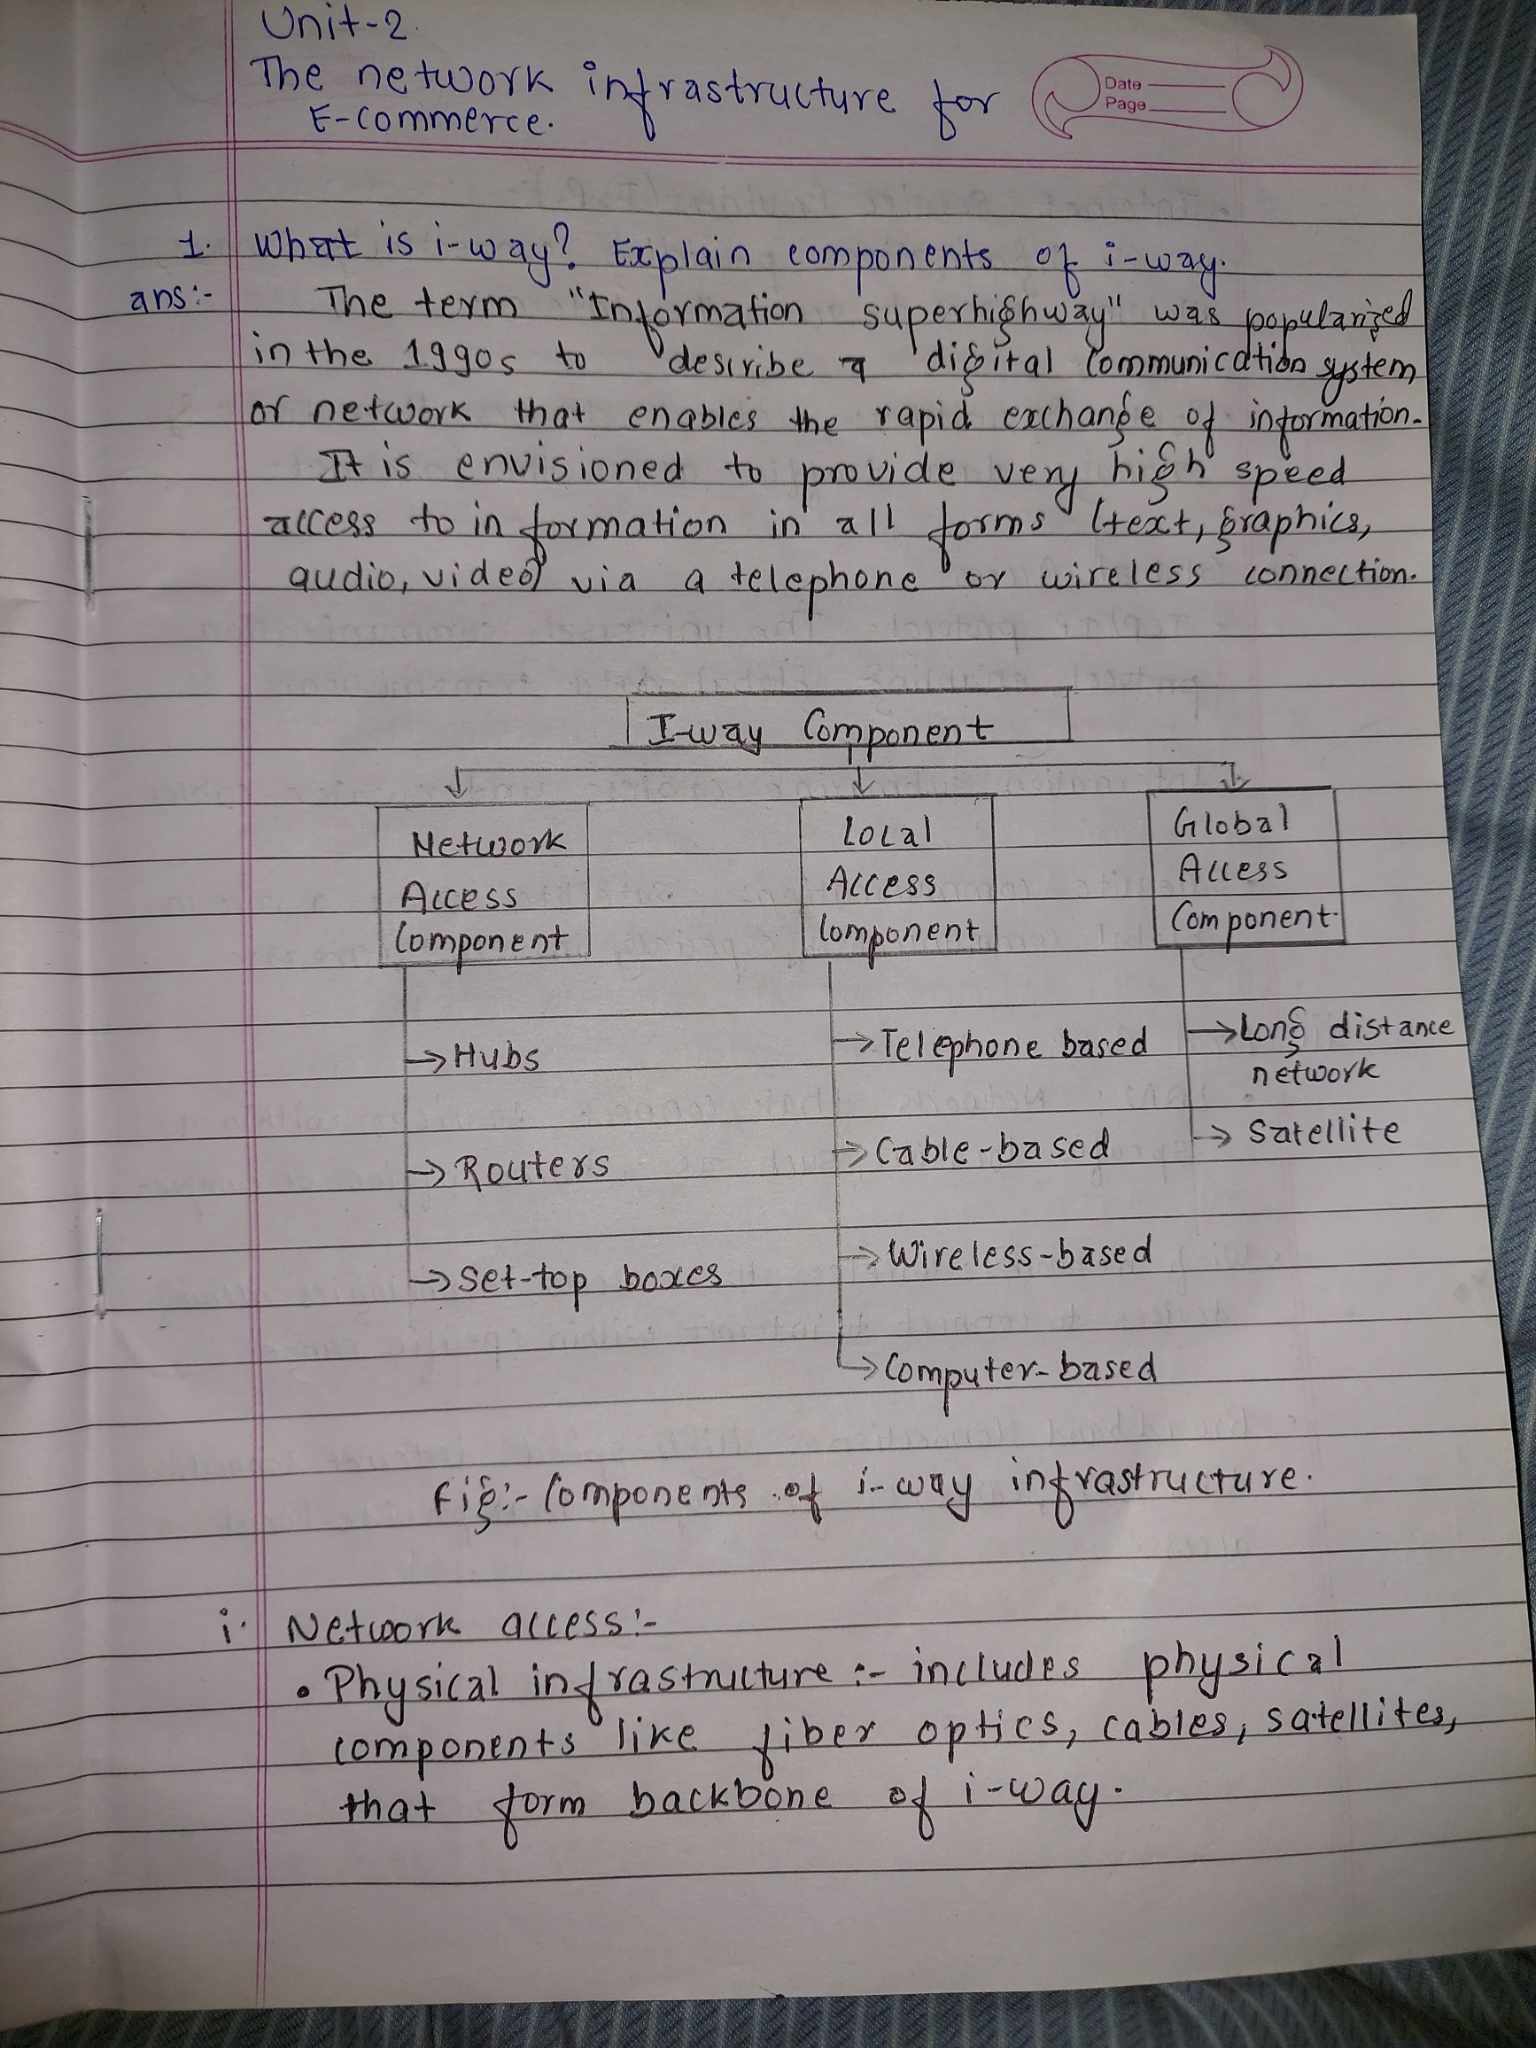 Unit-2
The network infrastructure for
E-commerce.
Date
Page
1. What is i-way? Explain components of i-way.
ans:- The term "Information superhighway" was popularized
in the 1990s to describe a digital communication system
or network that enables the rapid exchange of information.
It is envisioned to provide very high speed
access to information in all forms (text, graphics,
audio, video) via a telephone or wireless connection.
I-way Component
Network
Access
Component
Local
Access
Component
Global
Access
Component
→ Hubs
→ Routers
→ Set-top boxes
→ Telephone based
→ Cable-based
→ Wireless-based
→ Computer-based
→ Long distance
network
→ Satellite
Fig:- Components of i-way infrastructure.
i. Network access:-
• Physical infrastructure :- includes physical
components like fiber optics, cables, satellites,
that form backbone of i-way.